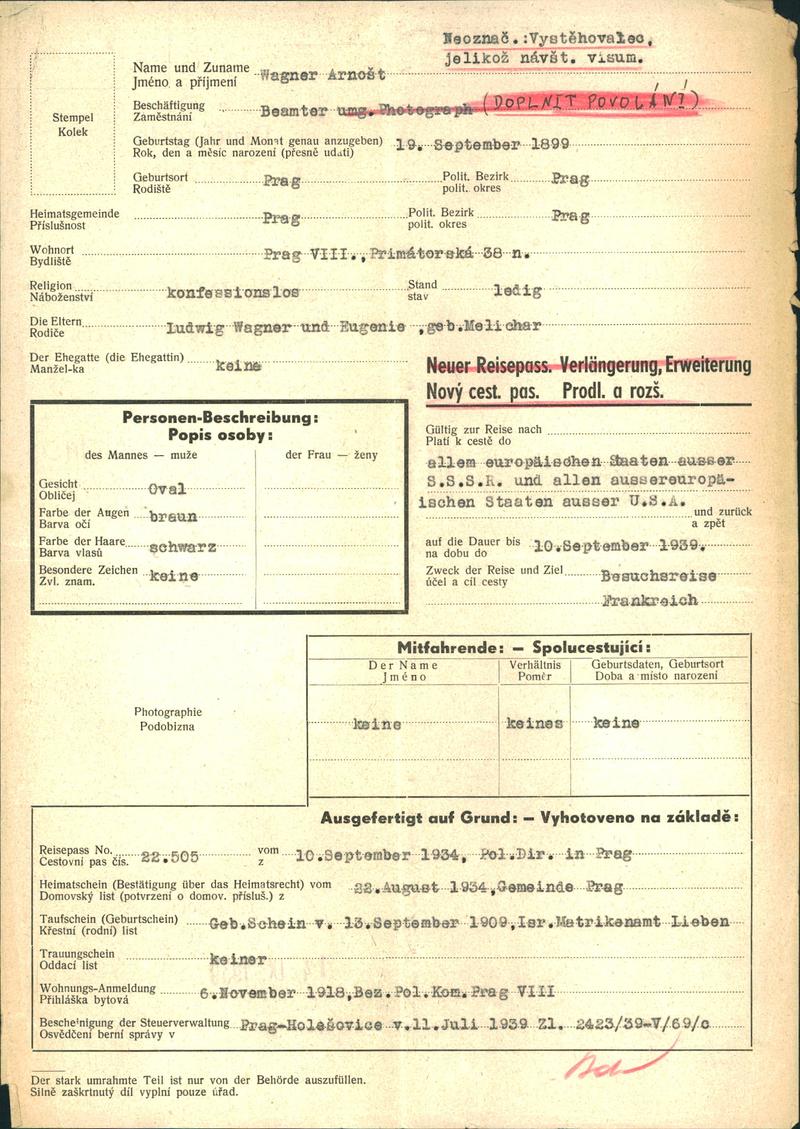 Neoznač.:Vystěhovalec,
jelikož návšt. visum.
Stempel
Kolek
Name und Zuname
Jméno a příjmení
Wagner Arnošt
Beschäftigung
Zaměstnání
Beamter umg. Photograph (DOPLNIT POVOLÁNÍ!)
Geburtstag (Jahr und Monat genau anzugeben)
Rok, den a měsíc narození (přesně udati)
19. September 1899
Geburtsort
Rodiště
Prag
Polit. Bezirk
polit. okres
Prag
Heimatsgemeinde
Příslušnost
Prag
Polit. Bezirk
polit. okres
Prag
Wohnort
Bydliště
Prag VIII., Primátorská 38 n.
Religion
Náboženství
konfessionslos
Stand
stav
ledig
Die Eltern
Rodiče
Ludwig Wagner und Eugenie ,geb.Melichar
Der Ehegatte (die Ehegattin)
Manžel-ka
keine
Neuer Reisepass. Verlängerung, Erweiterung
Nový cest. pas. Prodl. a rozš.
Personen-Beschreibung:
Popis osoby:
des Mannes — muže
der Frau — ženy
Gesicht
Obličej
Oval
Farbe der Augen
Barva očí
braun
Farbe der Haare
Barva vlasů
schwarz
Besondere Zeichen
Zvl. znam.
keine
Gültig zur Reise nach
Platí k cestě do
allem europäischen Staaten ausser
S.S.S.R. und allen aussereuropä-
ischen Staaten ausser U.S.A.
und zurück
a zpět
auf die Dauer bis
na dobu do
10.September 1939.
Zweck der Reise und Ziel
účel a cíl cesty
Besuchsreise
Frankreich
Mitfahrende: — Spolucestující:
Der Name
Jméno
Verhältnis
Poměr
Geburtsdaten, Geburtsort
Doba a místo narození
keine keines keine
Photographie
Podobizna
Ausgefertigt auf Grund: — Vyhotoveno na základě:
Reisepass No.
Cestovní pas čís.
22.505
vom
z
10.September 1934, Pol.Dir. in Prag
Heimatschein (Bestätigung über das Heimatsrecht) vom
Domovský list (potvrzení o domov. přísluš.) z
22.August 1934,Gemeinde Prag
Taufschein (Geburtschein)
Křestní (rodní) list
Geb.Schein v. 13.September 1909,Isr.Matrikenamt Lieben
Trauungschein
Oddací list
keiner
Wohnungs-Anmeldung
Přihláška bytová
6.November 1918,Bez.Pol.Kom.Prag VIII
Bescheinigung der Steuerverwaltung
Osvědčení berní správy v
Prag-Holešovice v.11.Juli 1939 Zl. 2423/39-V/69/c
Der stark umrahmte Teil ist nur von der Behörde auszufüllen.
Silně zaškrtnutý díl vyplní pouze úřad.